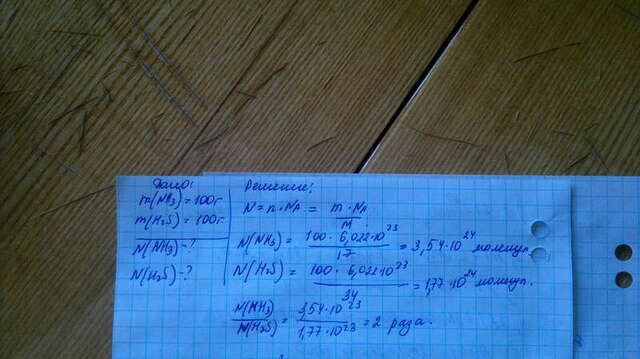 Дано:
m(NH₃) = 100г
m(H₂S) = 100г
N(NH₃) - ?
N(H₂S) - ?
Решение:
N = n · NA = m · NA / M
N(NH₃) = 100 · 6,022·10²³ / 17 = 3,54·10²⁴ молекул.
N(H₂S) = 100 · 6,022·10²³ / 34 = 1,77·10²⁴ молекул.
N(NH₃) / N(H₂S) = 3,54·10²³ / 1,77·10²³ = 2 раза.